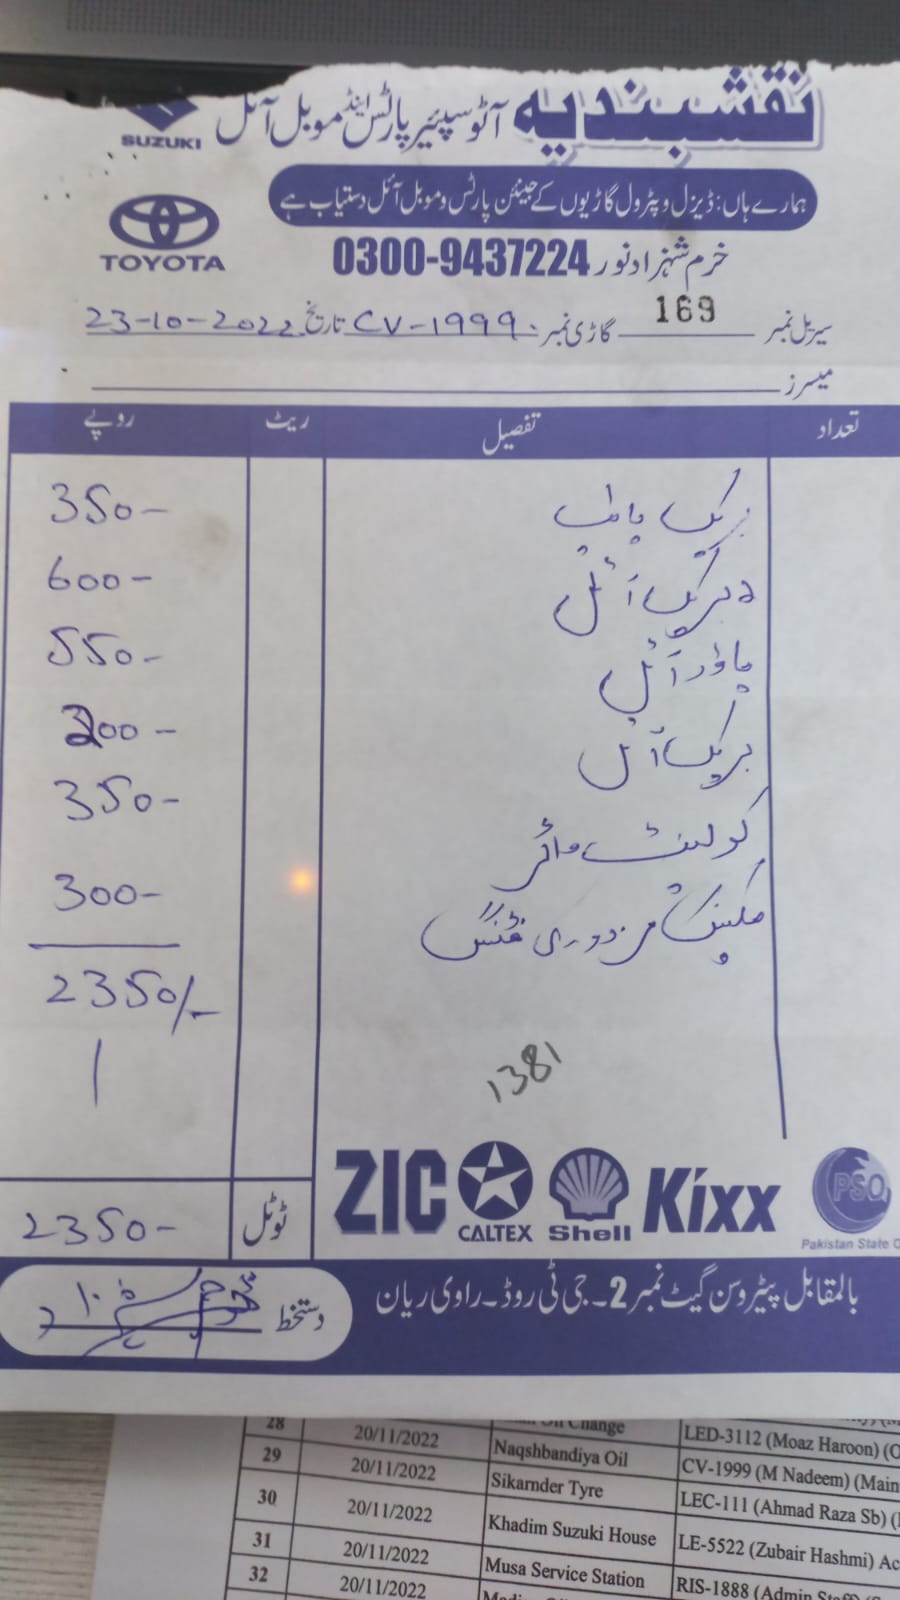 نقشبندیہ آٹو سپئیر پارٹس اینڈ موبل آئل
SUZUKI
ہمارے ہاں: ڈیزل و پٹرول گاڑیوں کے جینئن پارٹس و موبل آئل دستیاب ہے
TOYOTA
خرم شہزاد نور 0300-9437224
سیریل نمبر 169 گاڑی نمبر CV-1999 تاریخ 23-10-2022
میسرز
تعداد تفصیل ریٹ روپے
بریک 350-
بریک آئل 600-
پاؤر آئل 550-
بریک آئل 200-
کولینٹ 350-
مزدوری 300-
2350/-
1381
ZIC CALTEX Shell Kixx PSO
Pakistan State
ٹوٹل 2350-
بالمقابل پیٹروسن گیٹ نمبر 2۔ جی ٹی روڈ۔ راوی ریان
دستخط
28 20/11/2022 Oil Change LED-3112 (Moaz Haroon) (O
29 20/11/2022 Naqshbandiya Oil CV-1999 (M Nadeem) (Main
30 20/11/2022 Sikarnder Tyre LEC-111 (Ahmad Raza Sb) (
31 20/11/2022 Khadim Suzuki House LE-5522 (Zubair Hashmi) Ac
32 20/11/2022 Musa Service Station RIS-1888 (Admin Staff)